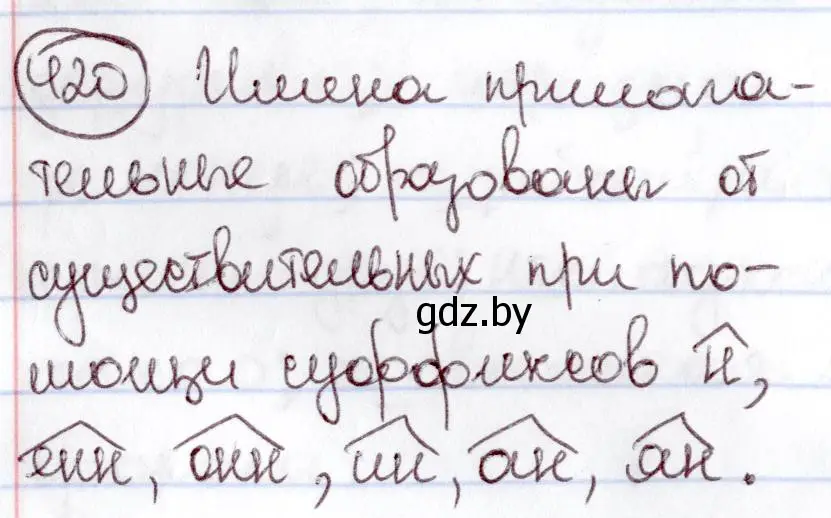 420 Имена прилага-
тельные образованы от
существительных при по-
мощи суффиксов н,
gdz.by
енн, онн, ин, ан, ян.